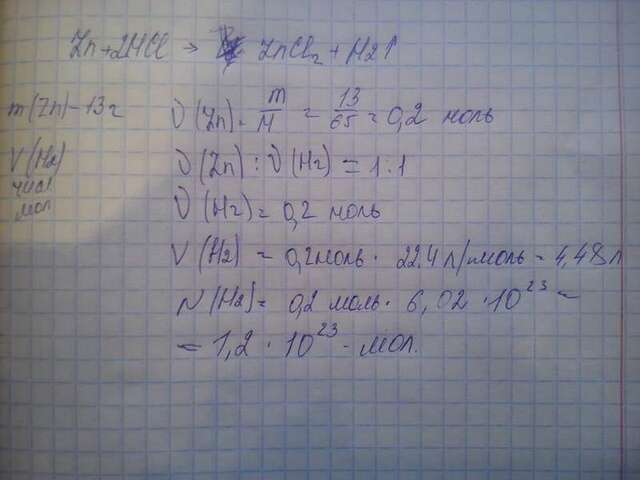 Zn + 2HCl → ZnCl₂ + H2↑
m(Zn) - 13 г
V(H2)
числ
мол
υ(Zn) = m/M = 13/65 = 0,2 моль
υ(Zn) : υ(H2) = 1:1
υ(H2) = 0,2 моль
V(H2) = 0,2 моль · 22.4 л/моль = 4,48 л
N(H2) = 0,2 моль · 6,02 · 10²³ =
= 1,2 · 10²³ мол.